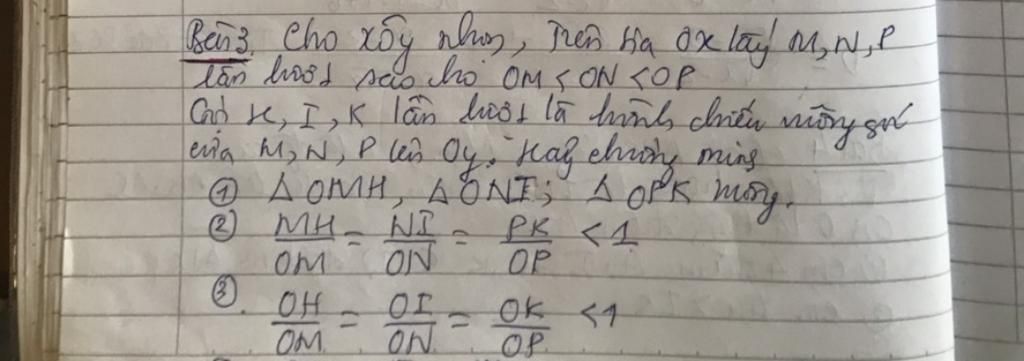 Bài 3. Cho xÔy nhọn, Trên tia Ox lấy M, N, P
lần lượt sao cho OM < ON < OP
Gọi H, I, K lần lượt là hình chiếu vuông góc
của M, N, P lên Oy. Hãy chứng minh
① Δ OMH, Δ ONI; Δ OPK vuông.
② MH/OM = NI/ON = PK/OP < 1
③. OH/OM = OI/ON = OK/OP < 1